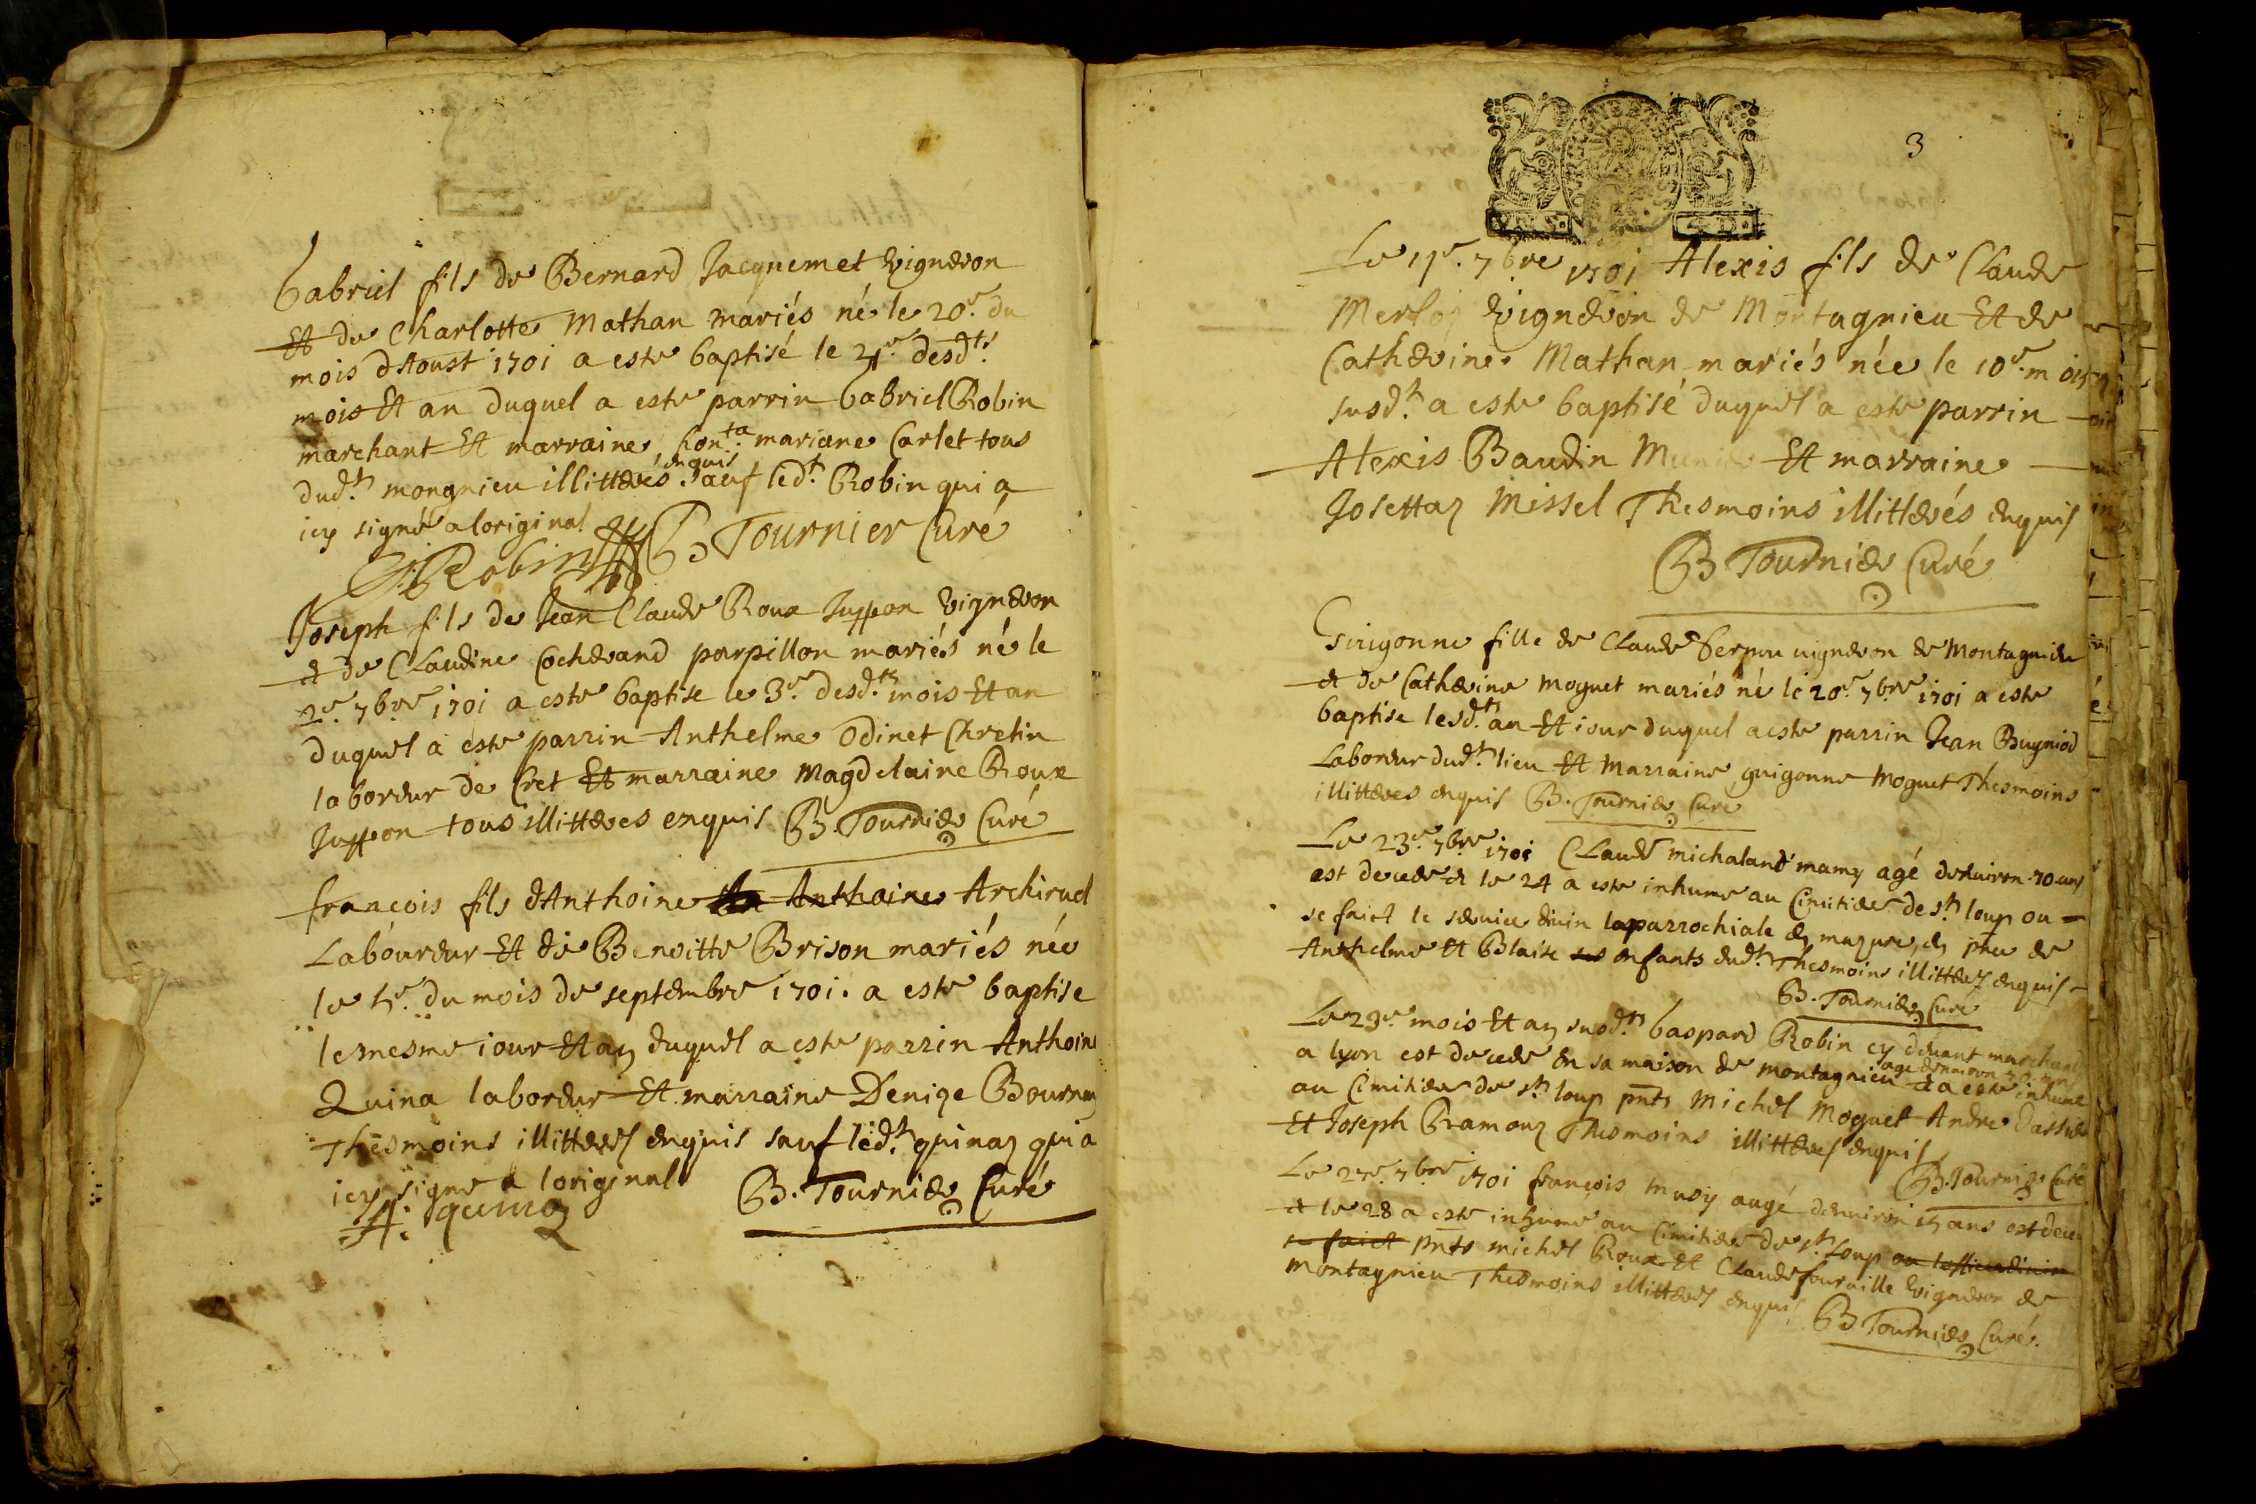 Gabriel fils de Bernard Jacquemet vigneron
Et de Charlotte Mathan mariés né le 20e. du
mois dAoust 1701 a este baptisé le 21e. desdts.
mois Et an duquel a este parrin Gabriel Robin
marchant Et marraine honta. mariane Carlet tous
dudt. mongnieu illitterés enquis sauf ledt. Robin qui a
icy signé a loriginal
G. Robin B Tournier Curé
Joseph fils de Jean Claude Roux Juppon vigneron
et de Claudine Cocherand parpillon mariés né le
2e. 7bre 1701 a este baptise le 3e. desdts mois Et an
duquel a este parrin Anthelme Odinet Chretin
laboreur de Cret Et marraine Magdelaine Roux
Juppon tous illitteres enquis B. Tournier Curé
francois fils dAnthoine Anthoine Archirel
Laboureur Et de Benoitte Brison mariés née
le 5e. du mois de septembre 1701. a este baptise
le mesme iour Et an duquel a este parrin Anthoine
Quina laboreur Et marraine Denize Bournay
Thesmoins illitteres enquis sauf ledt. quinaz qui a
icy signe a loriginal B. Tournier Curé
A. quinaz
3
Le 11e. 7bre 1701 Alexis fils de Claude
Merloz vigneron de Montagnieu Et de
Catherine Mathan mariés née le 10e. mois
susdt. a este baptisé duquel a este parrin
Alexis Baudin Munier Et marraine
Josettaz Missel Thesmoins illitterés enquis
B Tournier Curé
Guigonne fille de Claude vigneron de Montagnieu
et de Catherine Moguet mariés né le 20e. 7bre 1701 a este
baptise lesdts. an Et iour duquel a este parrin Jean Bugniod
Laboreur dudt. lieu Et Marraine guigonne Moguet Thesmoins
illitteres enquis B. Tournier Curé
Le 23e. 7bre 1701 Claude michaland mamy agé denviron 70 ans
est decede et le 24 a este inhume au Cimitier de st. loup ou
se faict le service divin la parrochiale en mazure, en pnce de
Anthelme Et Blaise ses enfants dudt. Thesmoins illitteres enquis
B. Tournier Curé
Le 29e. mois Et an susdts. Gaspard Robin cy devant marchand
a lyon est decede en sa maison de montagnieu age denviron et a este inhumé
au Cimitier de st. loup pnts Michel Moguet Andre
Et Joseph Gramouz Thesmoins illitteres enquis
B. Tournier Curé
Le 27e. 7bre 1701 francois musy augé denviron ans est decede
et le 28 a este inhume au Cimitier de st. loup ou lofficedivin
se faict pnts michel Roux Et Claude fouraille vigneron de
Montagnieu Thesmoins illitteres enquis
B Tournier Curé.